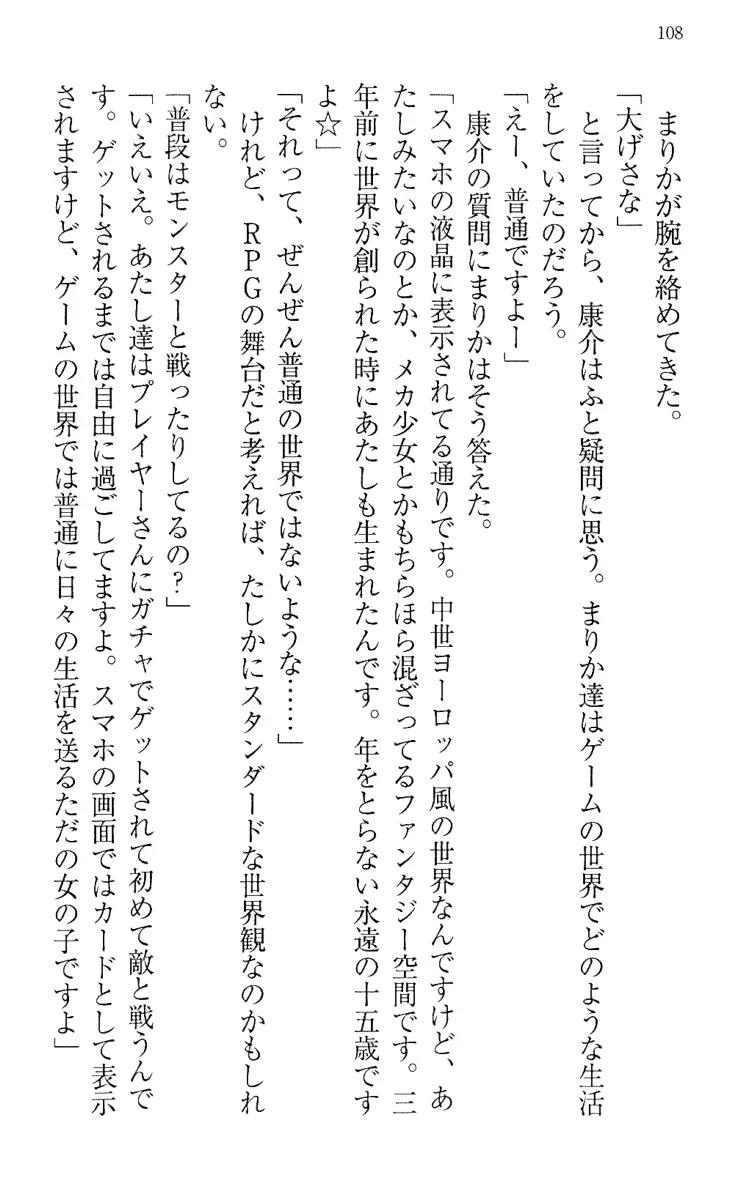 108
まりかが腕を絡めてきた。
「大げさな」
と言ってから、康介はふと疑問に思う。まりか達はゲームの世界でどのような生活
をしていたのだろう。
「えー、普通ですよー」
康介の質問にまりかはそう答えた。
「スマホの液晶に表示されてる通りです。中世ヨーロッパ風の世界なんですけど、あ
たしみたいなのとか、メカ少女とかもちらほら混ざってるファンタジー空間です。三
年前に世界が創られた時にあたしも生まれたんです。年をとらない永遠の十五歳です
よ☆」
「それって、ぜんぜん普通の世界ではないような……」
けれど、RPGの舞台だと考えれば、たしかにスタンダードな世界観なのかもしれ
ない。
「普段はモンスターと戦ったりしてるの？」
「いえいえ。あたし達はプレイヤーさんにガチャでゲットされて初めて敵と戦うんで
す。ゲットされるまでは自由に過ごしてますよ。スマホの画面ではカードとして表示
されますけど、ゲームの世界では普通に日々の生活を送るただの女の子ですよ」